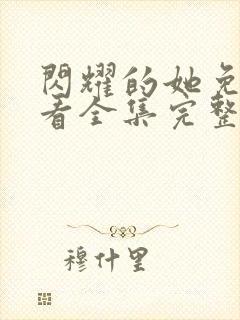 閃耀的她免
看全集完整
穆什里